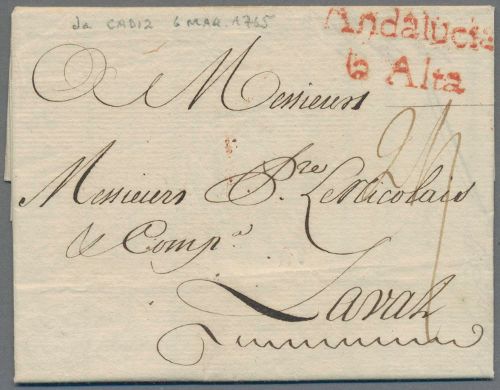 da CADIZ 6 MAR. 1765
Andalucia
Alta
A Messieurs
Messieurs P.re LeNicolais
& Comp.a
Laval